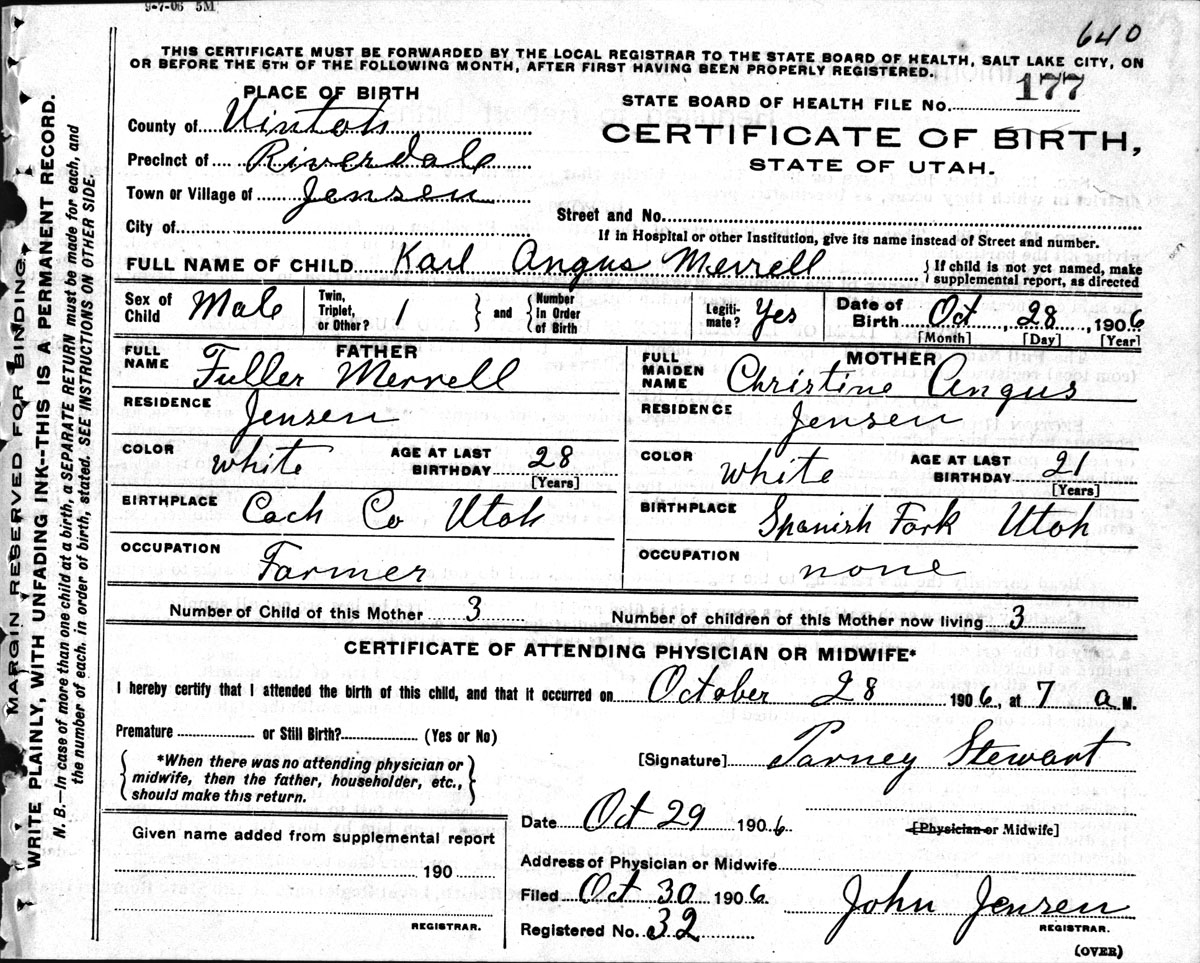 9-7-06 5M
640
THIS CERTIFICATE MUST BE FORWARDED BY THE LOCAL REGISTRAR TO THE STATE BOARD OF HEALTH, SALT LAKE CITY, ON
OR BEFORE THE 5TH OF THE FOLLOWING MONTH, AFTER FIRST HAVING BEEN PROPERLY REGISTERED.
PLACE OF BIRTH
STATE BOARD OF HEALTH FILE No. 177
County of Uintah
CERTIFICATE OF BIRTH,
Precinct of Riverdale
STATE OF UTAH.
Town or Village of Jensen
Street and No.
City of
If in Hospital or other Institution, give its name instead of Street and number.
FULL NAME OF CHILD Karl Angus Merrell
{ If child is not yet named, make
supplemental report, as directed
Sex of Child Male
Twin, Triplet, or Other? 1 } and { Number In Order of Birth
Legiti-mate? Yes
Date of Birth Oct, 28, 1906
[Month] [Day] [Year]
FATHER
FULL NAME Fuller Merrell
MOTHER
FULL MAIDEN NAME Christine Angus
RESIDENCE Jensen
RESIDENCE Jensen
COLOR white AGE AT LAST BIRTHDAY 28
[Years]
COLOR White AGE AT LAST BIRTHDAY 21
[Years]
BIRTHPLACE Cach Co Utah
BIRTHPLACE Spanish Fork Utah
OCCUPATION Farmer
OCCUPATION none
Number of Child of this Mother 3 Number of children of this Mother now living 3
CERTIFICATE OF ATTENDING PHYSICIAN OR MIDWIFE*
I hereby certify that I attended the birth of this child, and that it occurred on October 28 1906, at 7 a M.
Premature or Still Birth? (Yes or No)
{ *When there was no attending physician or
midwife, then the father, householder, etc.,
should make this return. }
[Signature] Parney Stewart
Date Oct 29 1906
[Physician or Midwife]
Given name added from supplemental report
190
Address of Physician or Midwife
Filed Oct 30 1906
John Jensen
REGISTRAR.
REGISTRAR.
Registered No. 32
(OVER)
MARGIN RESERVED FOR BINDING.
WRITE PLAINLY, WITH UNFADING INK--THIS IS A PERMANENT RECORD.
N. B.—In case of more than one child at a birth, a SEPARATE RETURN must be made for each, and
the number of each, in order of birth, stated. SEE INSTRUCTIONS ON OTHER SIDE.